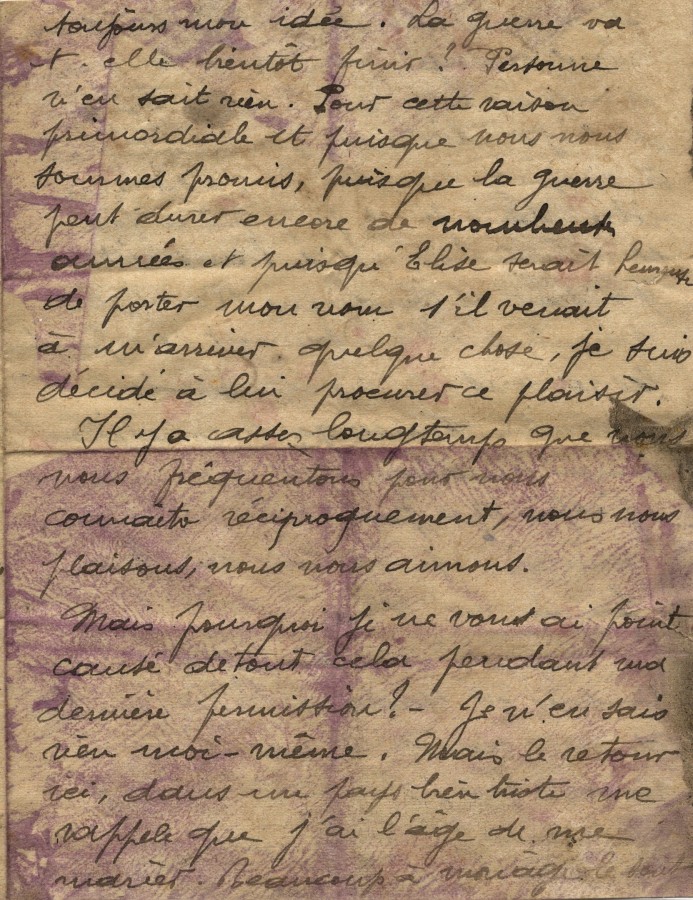 toujours mon idée. La guerre va
t-elle bientôt finir? Personne
n'en sait rien. Pour cette raison
primordiale et puisque nous nous
sommes promis, puisque la guerre
peut durer encore de nombreuses
années et puisqu'Elise serait heureuse
de porter mon nom s'il venait
à m'arriver quelque chose, je suis
décidé à lui procurer ce plaisir.
Il y a assez longtemps que nous
nous fréquentons pour nous
connaître réciproquement, nous nous
plaisons, nous nous aimons.
Mais pourquoi je ne vous ai point
causé de tout cela pendant ma
dernière permission? - Je n'en sais
rien moi-même. Mais le retour
ici, dans un pays bien triste me
rappele que j'ai l'âge de me
marier. Beaucoup à mon âge le sont